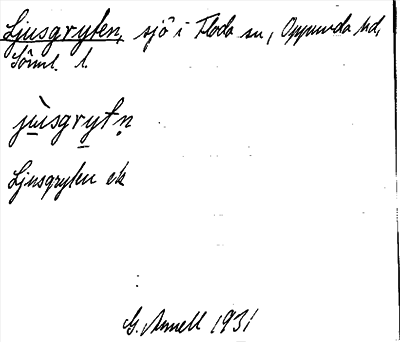 Ljusgryten, sjö i Floda sn, Oppunda hd,
Sörml. l.
jùsgrytn̥
Ljusgryten ek
G. Arnell 1931